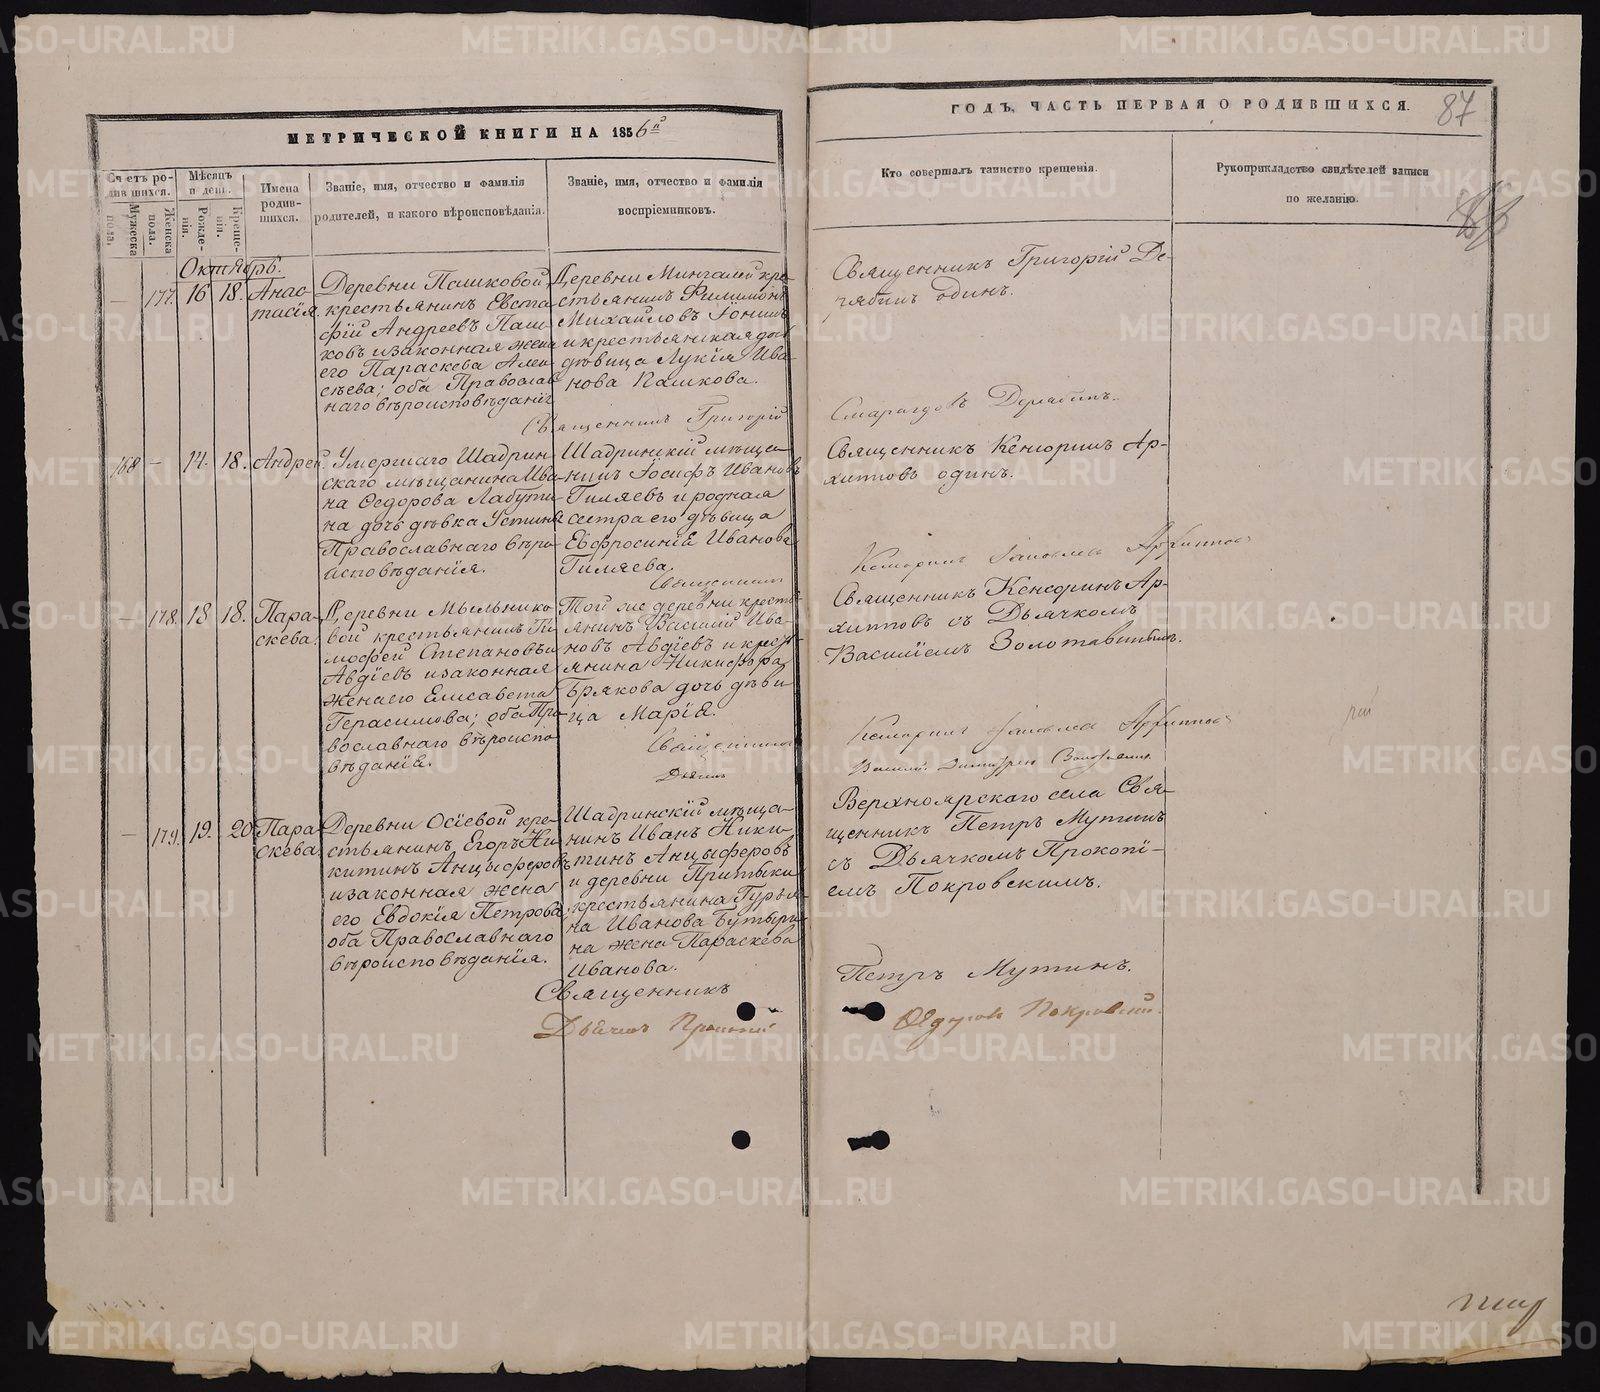 МЕТРИЧЕСКОЙ КНИГИ НА 1856й
ГОДЪ, ЧАСТЬ ПЕРВАЯ О РОДИВШИХСЯ.
87
Счетъ родившихся.
Мужеска пола.
Женска пола.
Мѣсяцъ и день.
Рожденія.
Крещенія.
Имена родившихся.
Званіе, имя, отчество и фамилія
родителей, и какого вѣроисповѣданія.
Званіе, имя, отчество и фамилія
воспріемниковъ.
Кто совершалъ таинство крещенія.
Рукоприкладство свидѣтелей записи
по желанію.
Октябрь.
177. 16 18.
Анас-
тасія
Деревни Пашковой
крестьянинъ Евста-
фій Андреевъ Паш-
ковъ и законная жена
его Параскева Алек-
сѣева; оба Православ
наго вѣроисповѣданія
Деревни Мингалей кре-
стьянинъ Филимонъ
Михайловъ Іонинъ
и крестьянская дочь
дѣвица Лукія Ива-
нова Пашкова.
Священникъ Григорій Де-
рябинъ одинъ.
Священникъ Григорій
Смарагдовъ Дерябинъ.
168 — 14. 18.
Андрей.
Умершаго Шадрин-
скаго мѣщанина Ива-
на Ѳедорова Лабути-
на дочь дѣвка Устинья
Православнаго вѣро-
исповѣданія.
Шадринскій мѣща-
нинъ Іосифъ Ивановъ
Гиляевъ и родная
сестра его дѣвица
Евфросинія Иванова
Гиляева.
Священникъ Кенсоринъ Ар-
хиповъ одинъ.
Священникъ
— 178. 13 18.
Пара-
скева.
Деревни Мыльнико-
вой крестьянинъ Ти-
мофей Степановъ
Авдіевъ и законная
жена его Елисавета
Герасимова; оба Пра-
вославнаго вѣроиспо-
вѣданія.
Той же деревни кресть-
янинъ Василій Ива-
новъ Авдіевъ и крест-
янина Никифора
Брякова дочь дѣви-
ца Марія.
Священникъ Кенсоринъ Ар-
хиповъ съ Дьячкомъ
Василіемъ Золотавинымъ.
Священникъ
Дьячекъ
— 179. 19. 20
Пара-
скева.
Деревни Осіевой кре-
стьянинъ Егоръ Ни-
китинъ Анцыферовъ
и законная жена
его Евдокія Петрова;
оба Православнаго
вѣроисповѣданія.
Шадринскій мѣща-
нинъ Иванъ Ники-
тинъ Анцыферовъ
и деревни Притыки
крестьянина Гурья-
на Иванова Бутыри-
на жена Параскева
Иванова.
Верхноярскаго села Свя-
щенникъ Петръ Мутинъ
съ Дьячкомъ Прокопі-
емъ Покровскимъ.
Священникъ
Петръ Мутинъ.
Дьячекъ Прокопій
Ѳедоровъ Покровскій.
METRIKI.GASO-URAL.RU